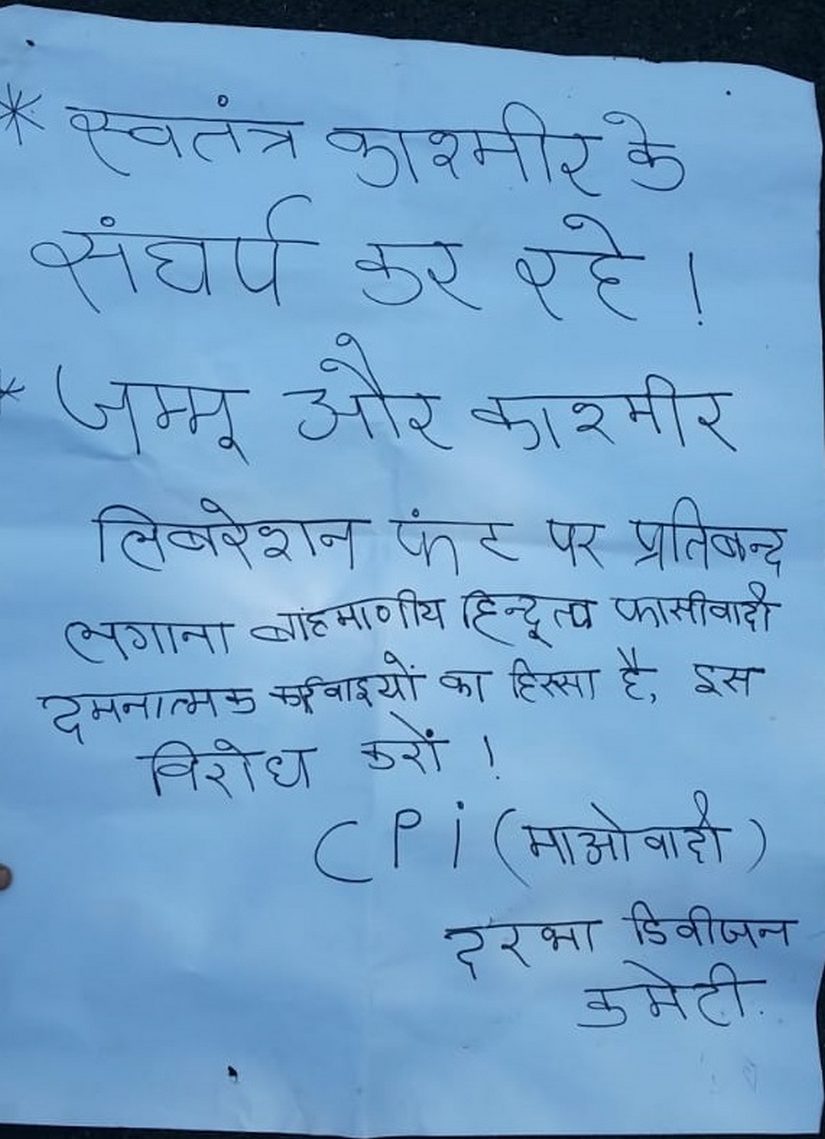 * स्वतंत्र काश्मीर के
संघर्ष कर रहे !
* जम्मू और काश्मीर
लिबरेशन फंट पर प्रतिबन्द
लगाना बांहमाणीय हिन्दूत्व फासीवादी
दमनात्मक कर्रवाइयों का हिस्सा है, इस
विरोध करों !
CPi (माओवादी)
दरभा डिवीजन
कमेटी.